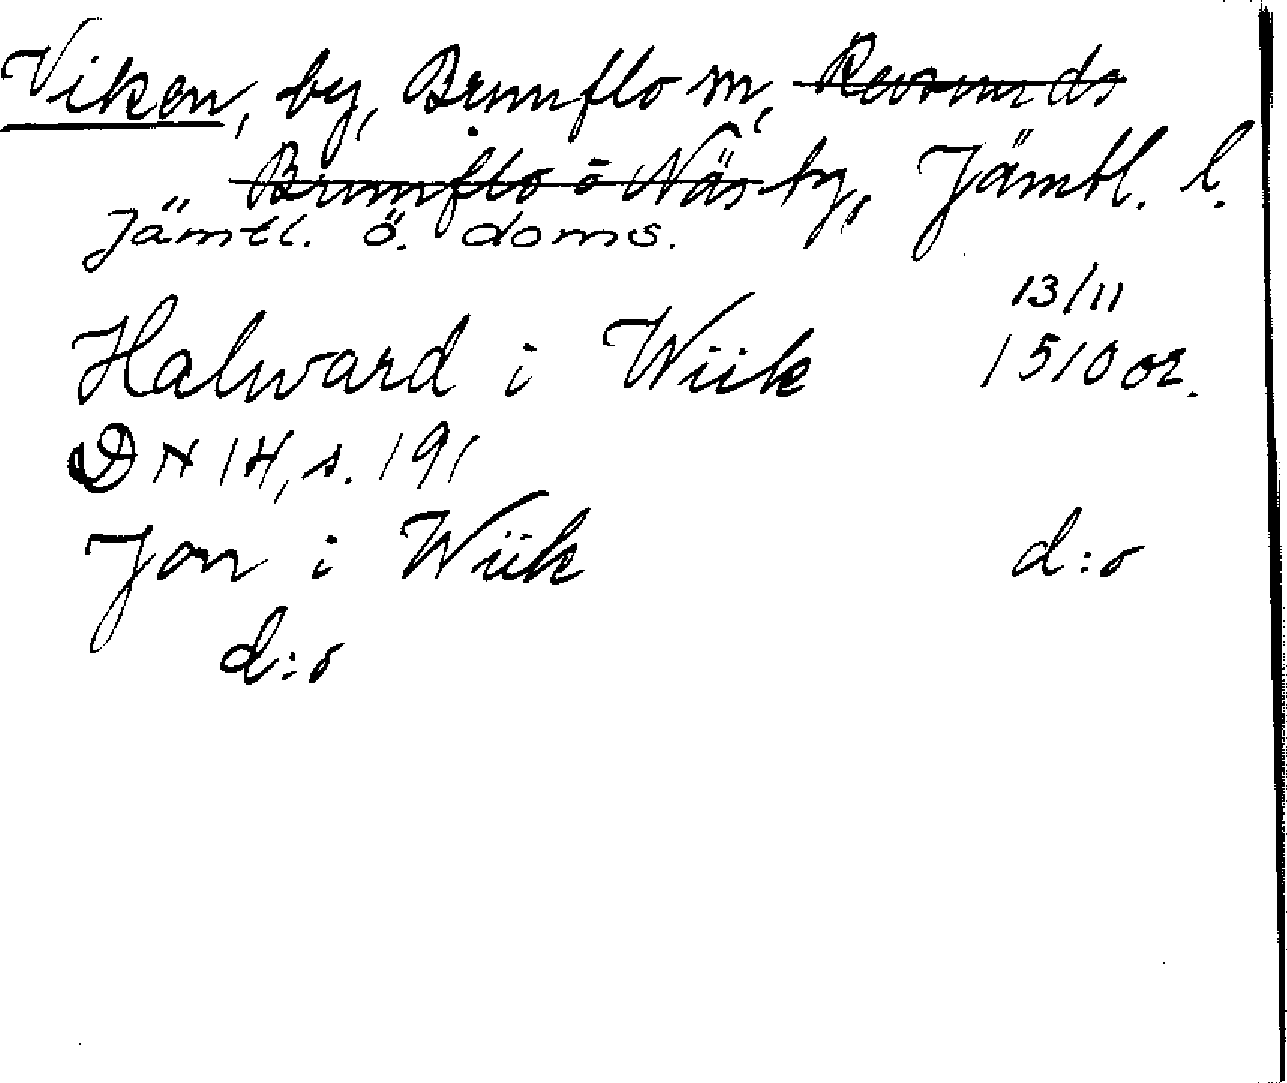 Viken, by, Brunflo sn, Revsunds
Brunflo o Näs tg, Jämtl. l.
Jämtl. ö. doms.
13/11
Halward i Wiik 1510 or.
DN 14, s. 191
Jon i Wiik d:o
d:o